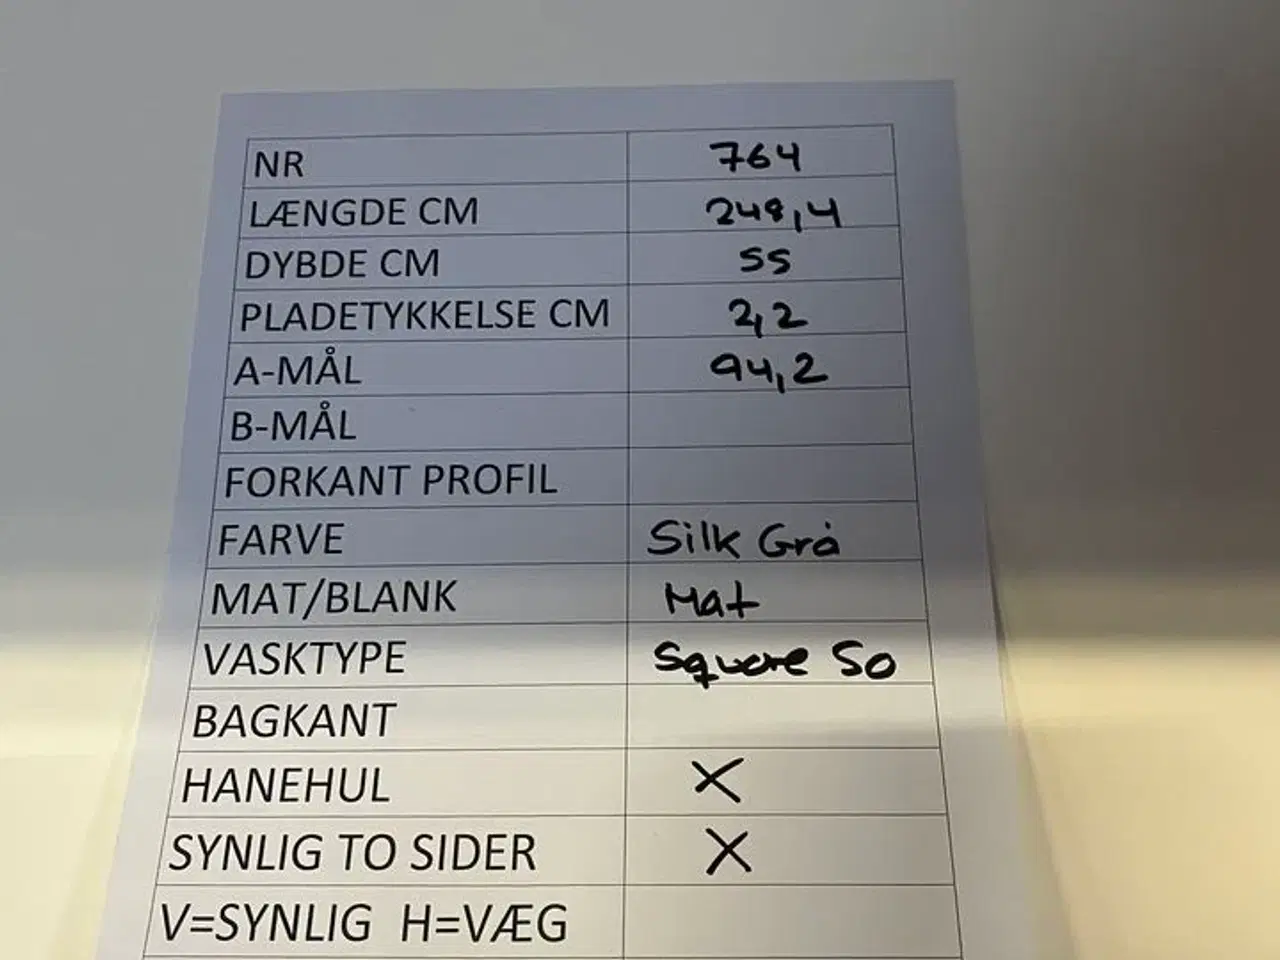 NR 764
LÆNGDE CM 248,4
DYBDE CM 55
PLADETYKKELSE CM 2,2
A-MÅL 94,2
B-MÅL
FORKANT PROFIL
FARVE Silk Grå
MAT/BLANK Mat
VASKTYPE Square 50
BAGKANT
HANEHUL X
SYNLIG TO SIDER X
V=SYNLIG H=VÆG